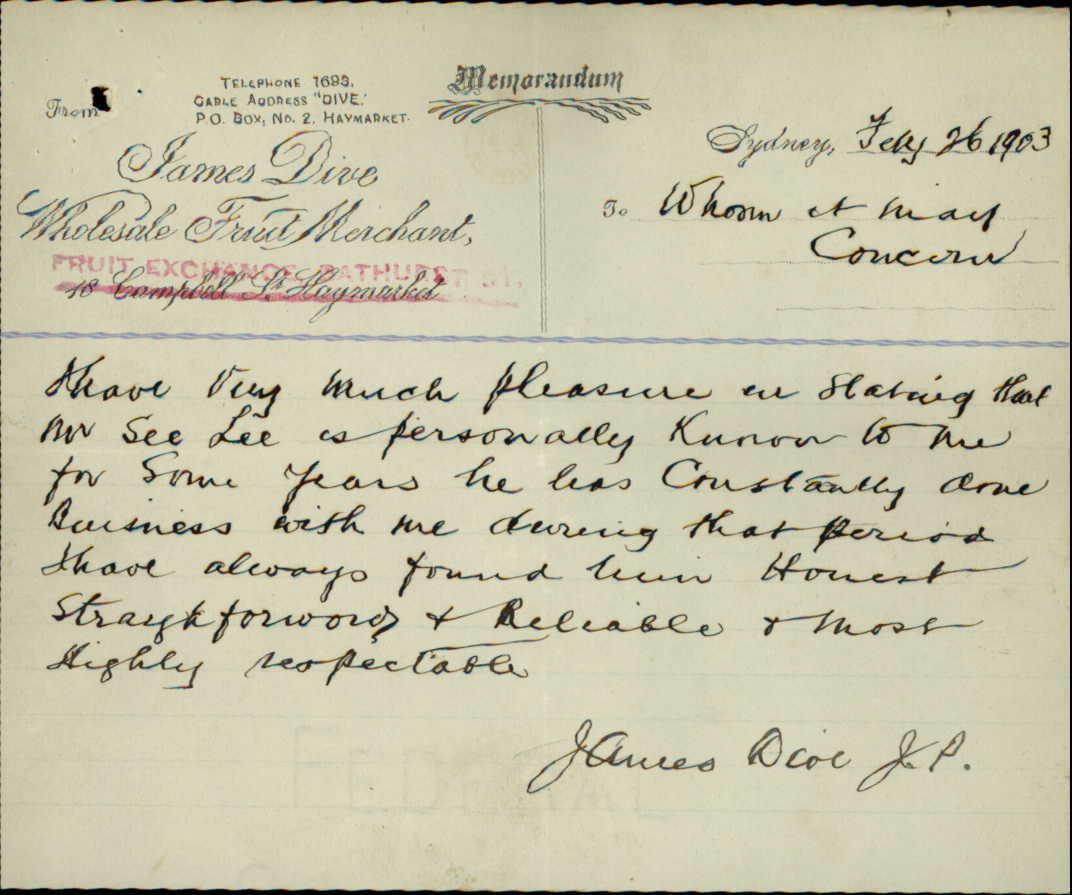 Memorandum
From
TELEPHONE 1693.
CABLE ADDRESS "DIVE."
P.O. BOX, No. 2, HAYMARKET.
James Dive
Wholesale Fruit Merchant,
FRUIT EXCHANGE, BATHURST ST.
18 Campbell St. Haymarket
Sydney, Feby 26 1903
To Whom it may
Concern
I have Very much pleasure in Stating that
Mr See Lee is personally Known to me
for Some years he has Constantly done
Buisness with me during that period
I have always found him Honest
Straightforward & Reliable & most
Highly respectable
James Dive J.P.
FEDERAL